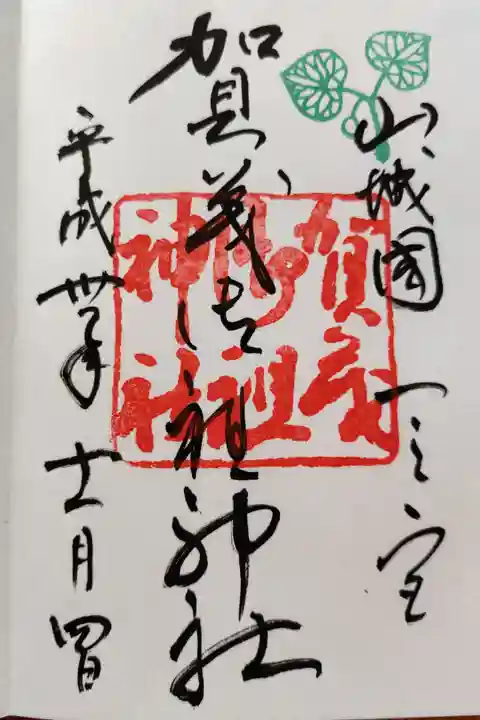 山城國一之宮
賀茂御祖神社
平成卅年十一月四日
賀茂
御祖
神社